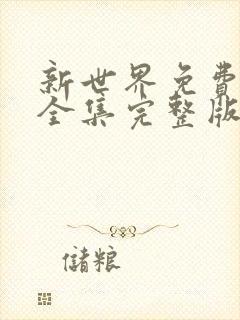 新世界免費
全集完整版
儲粮